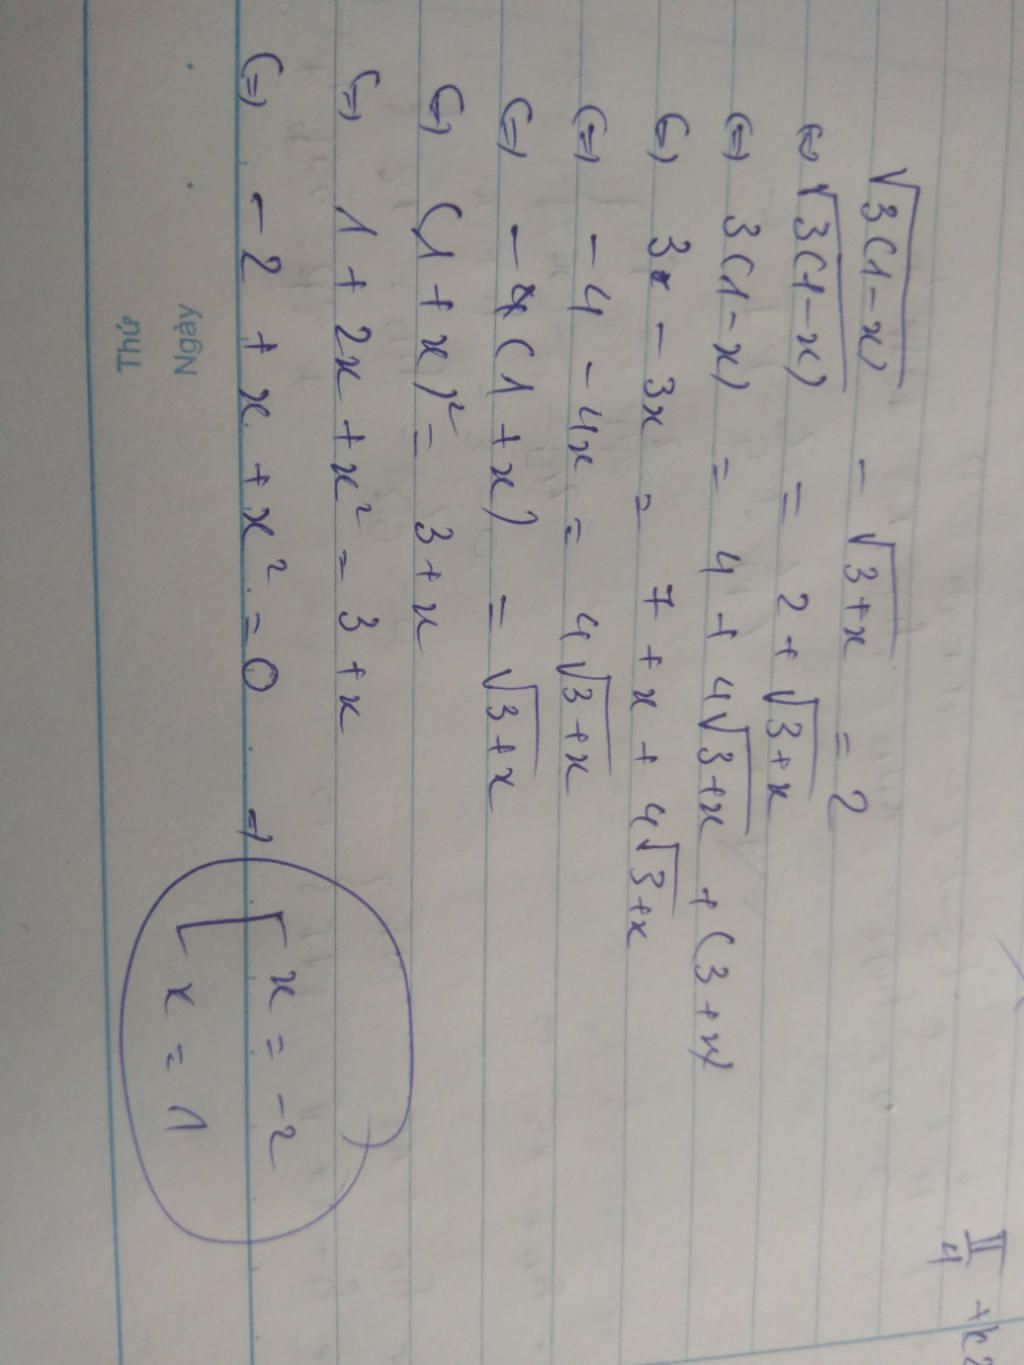 √3(1-x) - √3+x = 2
⇔ √3(1-x) = 2 + √3+x
⇔ 3(1-x) = 4 + 4√3+x + (3+x)
⇔ 3 - 3x = 7 + x + 4√3+x
⇔ -4 - 4x = 4√3+x
⇔ -(1+x) = √3+x
⇔ (1+x)² = 3+x
⇔ 1 + 2x + x² = 3+x
⇔ -2 + x + x² = 0 ⇒ [ x = -2
x = 1
π/4 +k2
Ngày
Thứ